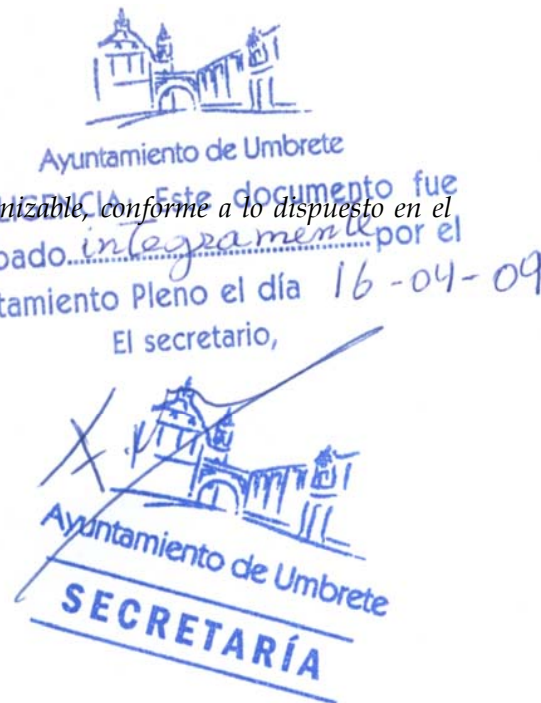 Ayuntamiento de Umbrete
LIGENCIA. Este documento fue
nizable, conforme a lo dispuesto en el
bado integramente por el
tamiento Pleno el día 16-04-09
El secretario,
Ayuntamiento de Umbrete
SECRETARÍA